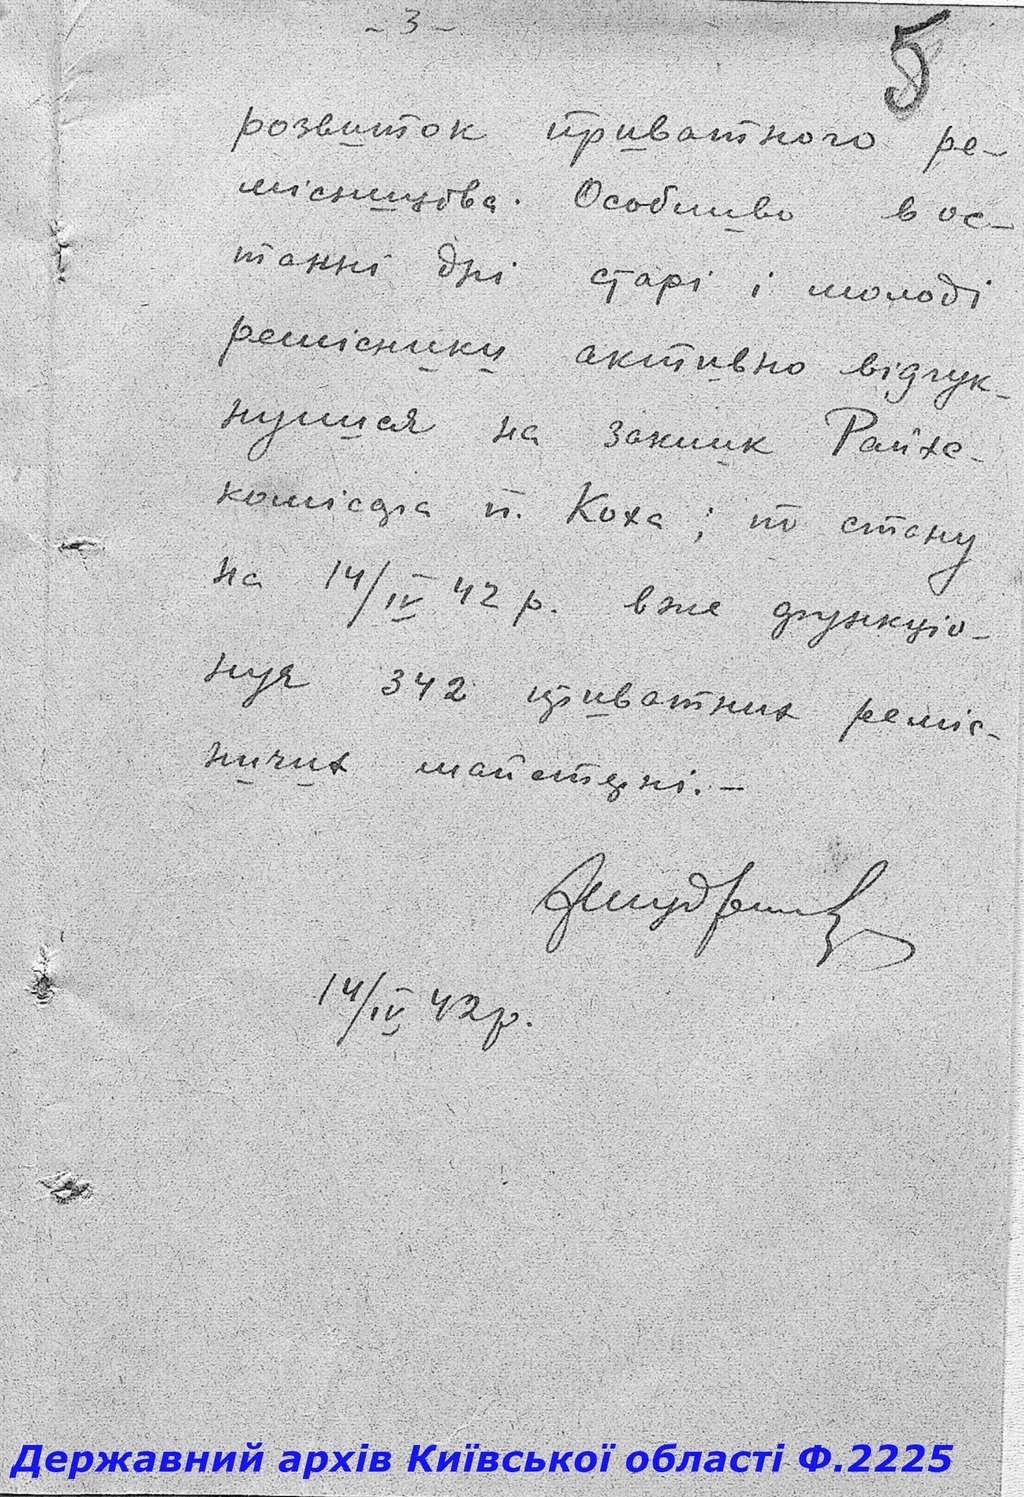 - 3 -
5
розвиток приватного ре-
місництва. Особливо в ос-
танні дні старі і молоді
ремісники активно відгук-
нулися на заклик Райхс-
комісара п. Коха; по стану
на 14/IV 42 р. вже функціо-
нує 342 приватних реміс-
ничих майстерні. –
14/IV 42 р.
Державний архів Київської області Ф.2225